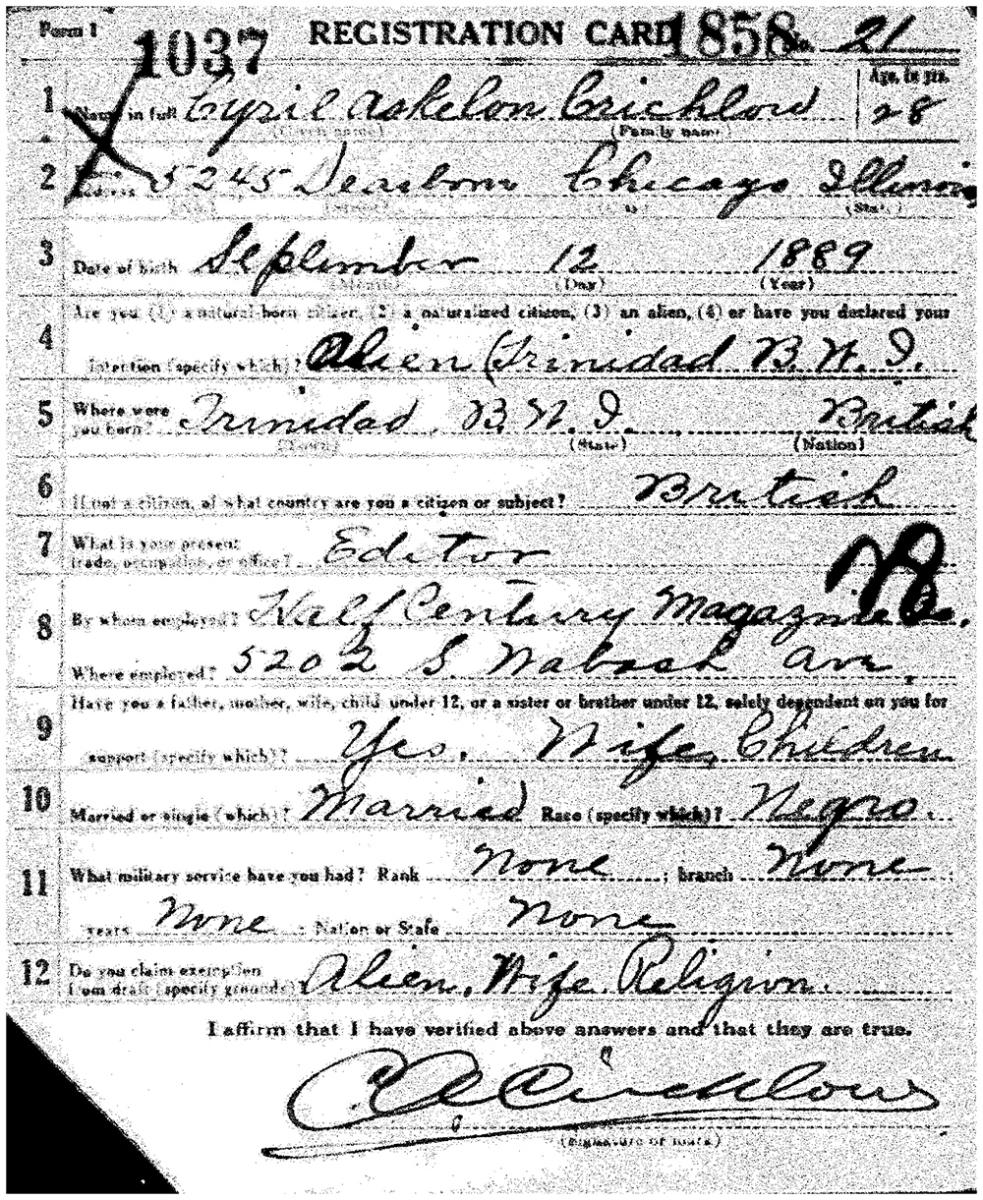 Form 1 1037 REGISTRATION CARD 1858 No. 21
1 Name in full Cyril Askelon Crichlow Age, in yrs. 28
(Given name) (Family name)
2 Home address 5245 Dearborn Chicago Illinois
(No.) (Street) (State)
3 Date of birth September 12 1889
(Month) (Day) (Year)
4 Are you (1) a natural-born citizen, (2) a naturalized citizen, (3) an alien, (4) or have you declared your
intention (specify which)? Alien (Trinidad B. W. I.
5 Where were you born? Trinidad, B. W. I. British
(Town) (State) (Nation)
6 If not a citizen, of what country are you a citizen or subject? British
7 What is your present
trade, occupation, or office? Editor
8 By whom employed? Half Century Magazine Co.
Where employed? 5202 S Wabash Ave,
9 Have you a father, mother, wife, child under 12, or a sister or brother under 12, solely dependent on you for
support (specify which)? Yes. Wife, Children
10 Married or single (which)? Married Race (specify which)? Negro.
11 What military service have you had? Rank None ; branch None ;
years None ; Nation or State None
12 Do you claim exemption
from draft (specify grounds)? Alien, Wife. Religion.
I affirm that I have verified above answers and that they are true.
C A Crichlow
(Signature or mark)